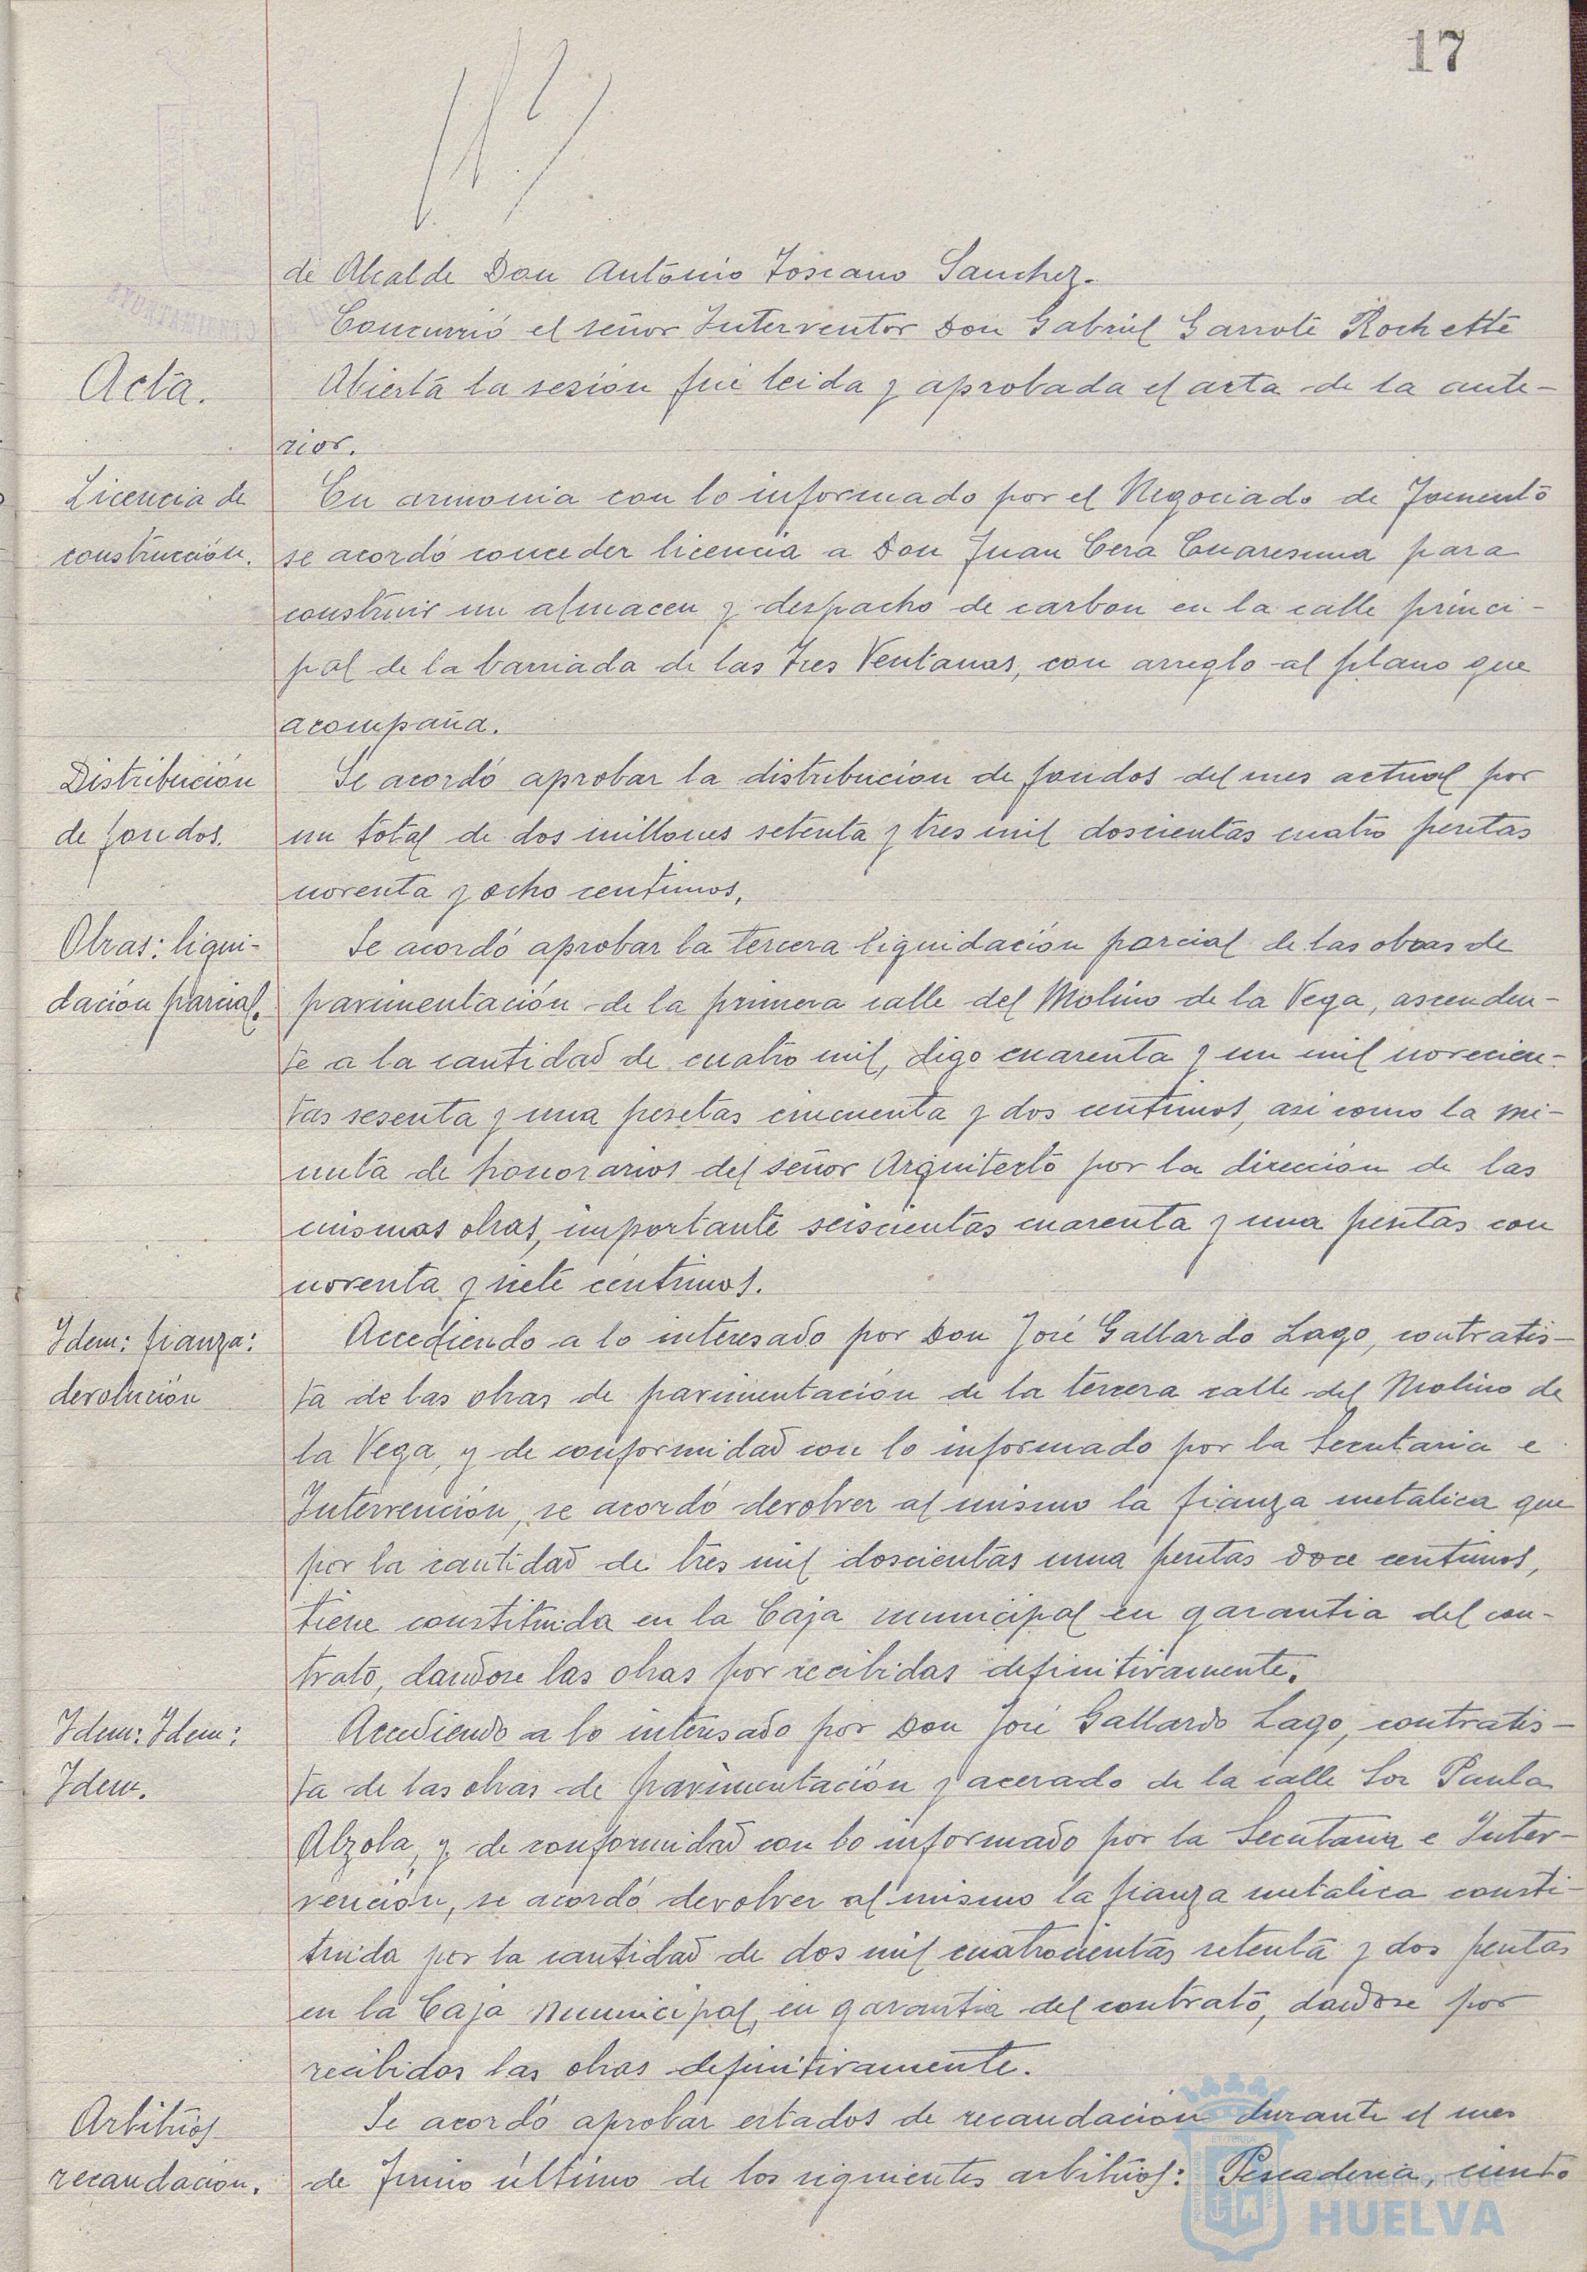 17
de Alcalde Don Antonio Toscano Sanchez.
Concurrió el señor Interventor Don Gabriel Garrote Rochette
Acta.
Abierta la sesión fué leida y aprobada el acta de la ante-
rior.
Licencia de
construcción.
En armonia con lo informado por el Negociado de Fomento
se acordó conceder licencia a Don Juan Cera Cuaresma para
construir un almacen y despacho de carbon en la calle princi-
pal de la barriada de las Tres Ventanas, con arreglo al plano que
acompaña.
Distribución
de fondos.
Se acordó aprobar la distribucion de fondos del mes actual por
un total de dos millones setenta y tres mil doscientas cuatro pesetas
noventa y ocho centimos,
Obras: liqui-
dación parcial.
Se acordó aprobar la tercera liquidación parcial de las obras de
pavimentación de la primera calle del Molino de la Vega, ascenden-
te a la cantidad de cuatro mil, digo cuarenta y un mil novecien-
tas sesenta y una pesetas cincuenta y dos centimos, asi como la mi-
nuta de honorarios del señor Arquitecto por la direccion de las
mismas obras, importante seiscientas cuarenta y una pesetas con
noventa y siete céntimos.
Idem: fianza:
devolución
Accediendo a lo interesado por Don José Gallardo Lago, contratis-
ta de las obras de pavimentación de la tercera calle del Molino de
la Vega, y de conformidad con lo informado por la Secretaria e
Intervención, se acordó devolver al mismo la fianza metalica que
por la cantidad de tres mil doscientas una pesetas doce centimos,
tiene constituida en la Caja municipal en garantia del con-
trato, dandose las obras por recibidas definitivamente.
Idem: Idem:
Idem.
Accediendo a lo interesado por Don José Gallardo Lago, contratis-
ta de las obras de pavimentación y acerado de la calle Sor Paula
Alzola, y de conformidad con lo informado por la Secretaria e Inter-
vención, se acordó devolver al mismo la fianza metalica consti-
tuida por la cantidad de dos mil cuatrocientas setenta y dos pesetas
en la Caja Municipal, en garantia del contrato, dandose por
recibidas las obras definitivamente.
Arbitrios
recaudacion.
Se acordó aprobar estados de recaudación durante el mes
de Junio último de los siguientes arbitrios: Pescaderia, ciento
Ayuntamiento de
HUELVA